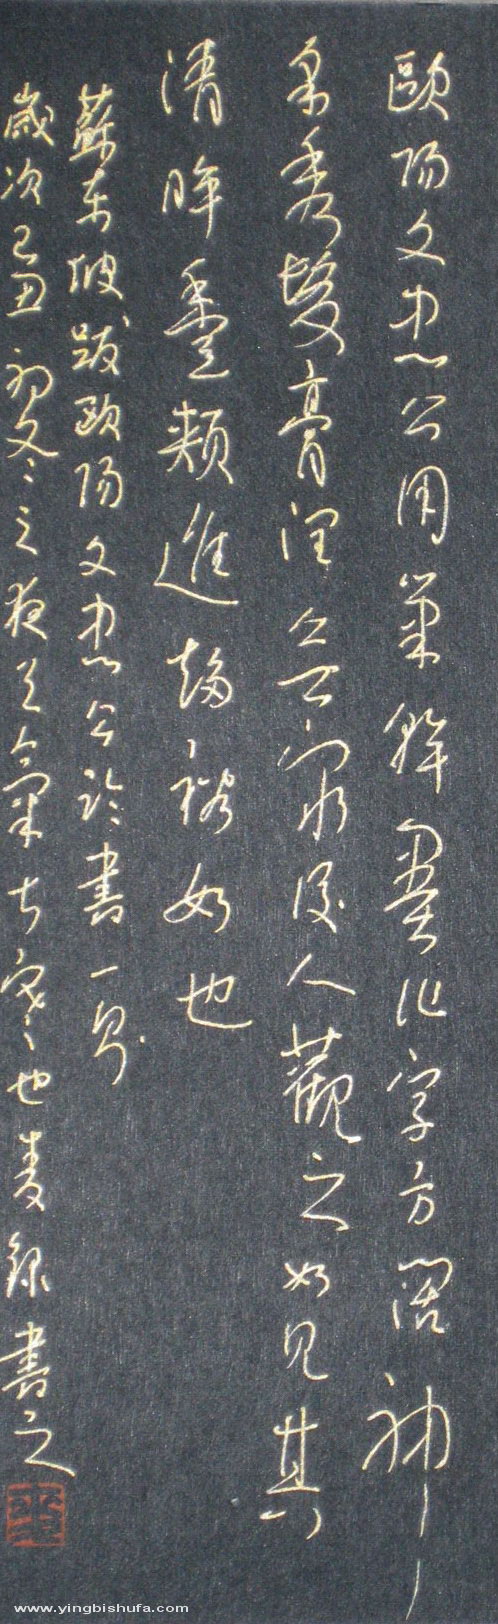 歐陽文忠公用筆乾墨作字方闊神
采秀發膏潤無窮後人觀之如見其
清眸豐頰進趨裕如也
蘇東坡跋歐陽文忠公論書一則
歲次己丑初之夜天氣寒也錄書之
www.yingbishufa.com